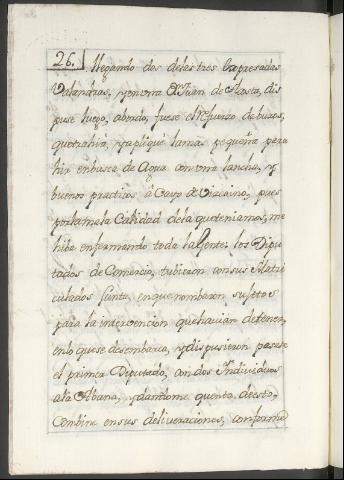 26. llegando dos delas tres Expresadas
Valandras, y en vna Dn. Juan de Acosta, dis
puse luego, abordo, fuese el Refuerzo de buzos,
que trahia, y apliqué la mas pequeña para
hir enbusca de Agua con vna lancha, y
buenos practicos â Cayo de Vizcaino, pues
por la mala Calidad dela que teniamos, me
hiba enfermando toda la Gente: los Dipu
tados de Comercio, tubieron con sus Matri
culados Junta, en que nombraron sujetos
para la intervencion que havian de tener,
en lo que se desembarca, y dispusieron pasase
el primer Diputado, con dos Individuos
ala Abana, y dandome quenta de esto,
Combine en sus deliveraciones, conforme